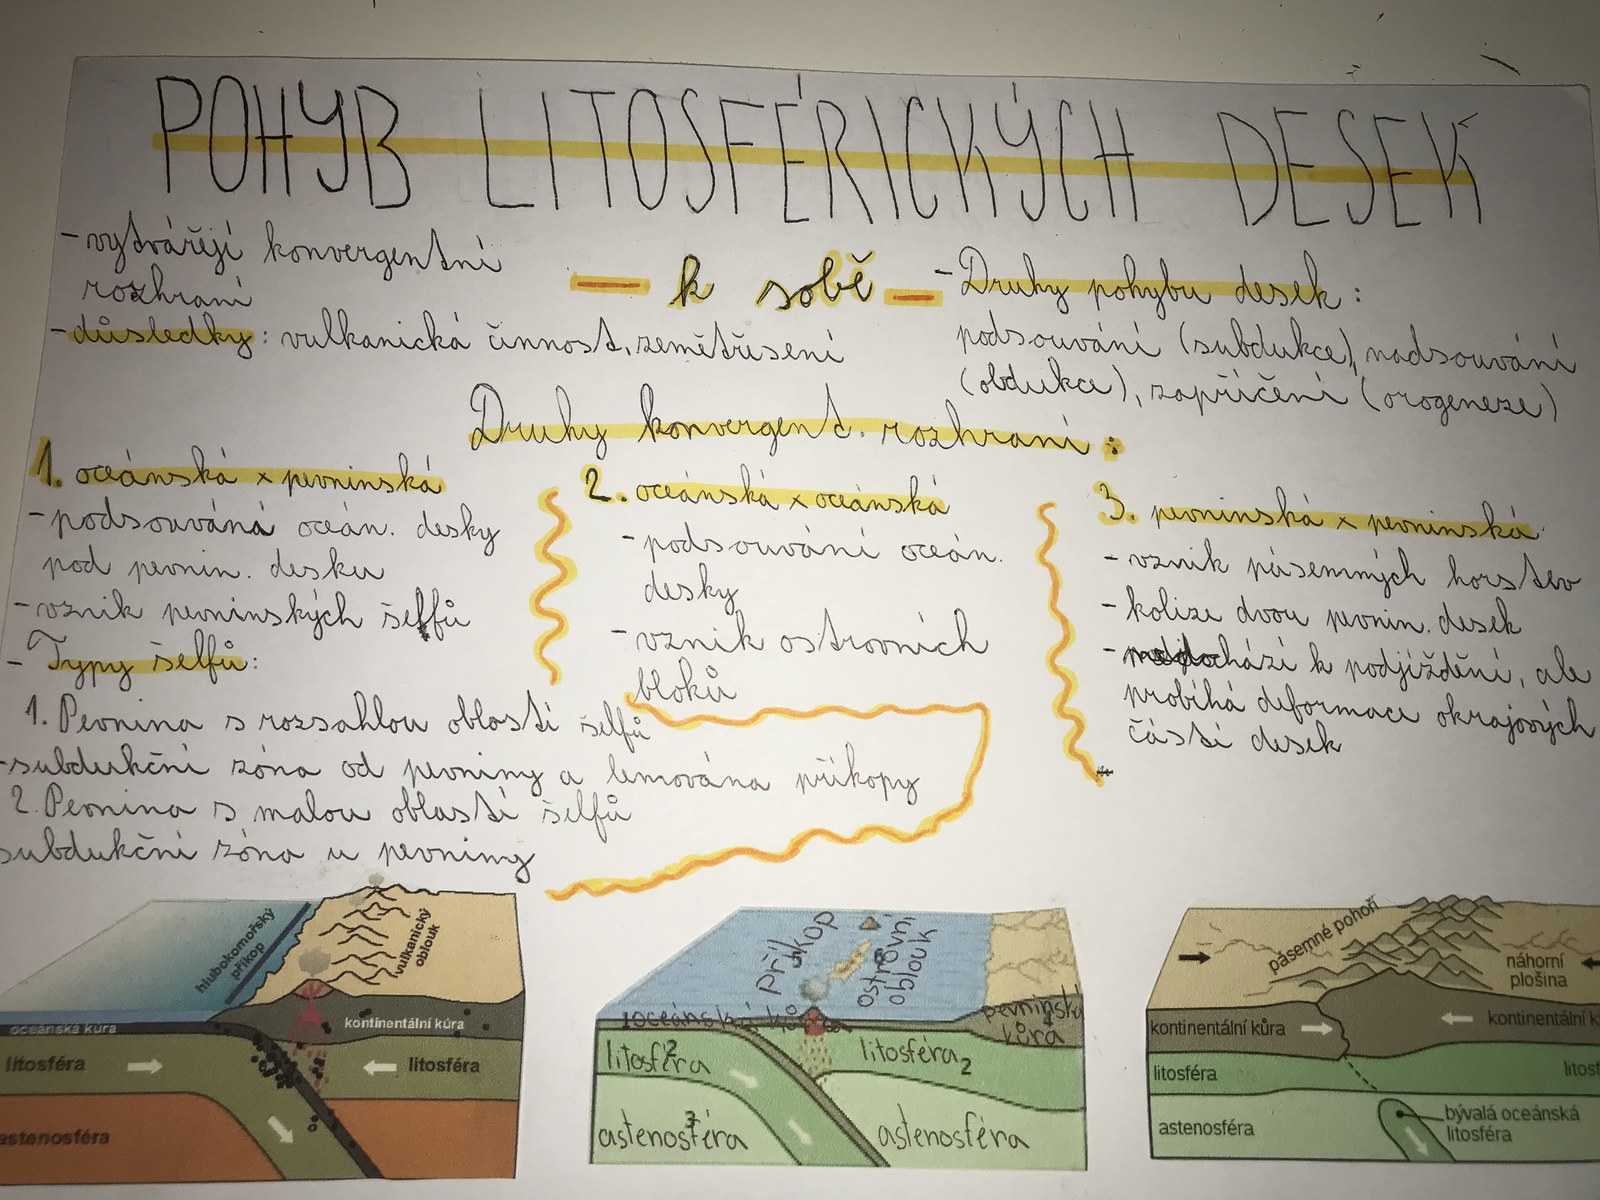 POHYB LITOSFÉRICKÝCH DESEK
- vytvářejí konvergentní
rozhraní
- důsledky: vulkanická činnost, zemětřesení
— k sobě —
- Druhy pohybu desek:
podsouvání (subdukce), nadsouvání
(obdukce), zapříčení (orogeneze)
Druhy konvergent. rozhraní:
1. oceánská x pevninská
- podsouváná oceán. desky
pod pevnin. desku
- vznik pevninských šelfů
- Typy šelfů:
1. Pevnina s rozsahlou oblastí šelfů
- subdukční zóna od pevniny a lemována příkopy
2. Pevnina s malou oblastí šelfů
subdukční zóna u pevniny
2. oceánská x oceánská
- podsouvání oceán.
desky
- vznik ostrovních
bloků
3. pevninská x pevninská
- vznik pásemných horstev
- kolize dvou pevnin. desek
- nedochází k podjíždění, ale
probíhá deformace okrajových
částí desek
hlubokomořský
příkop
vulkanický
oblouk
oceánská kůra
kontinentální kůra
litosféra
litosféra
astenosféra
příkop
ostrovní
oblouk
oceánská kůra
pevninská
kůra
litosféra
2
litosféra 2
astenosféra
3
astenosféra
pásemné pohoří
náhorní
plošina
kontinentální kůra
kontinentální k
litosféra
litosf
astenosféra
bývalá oceánská
litosféra